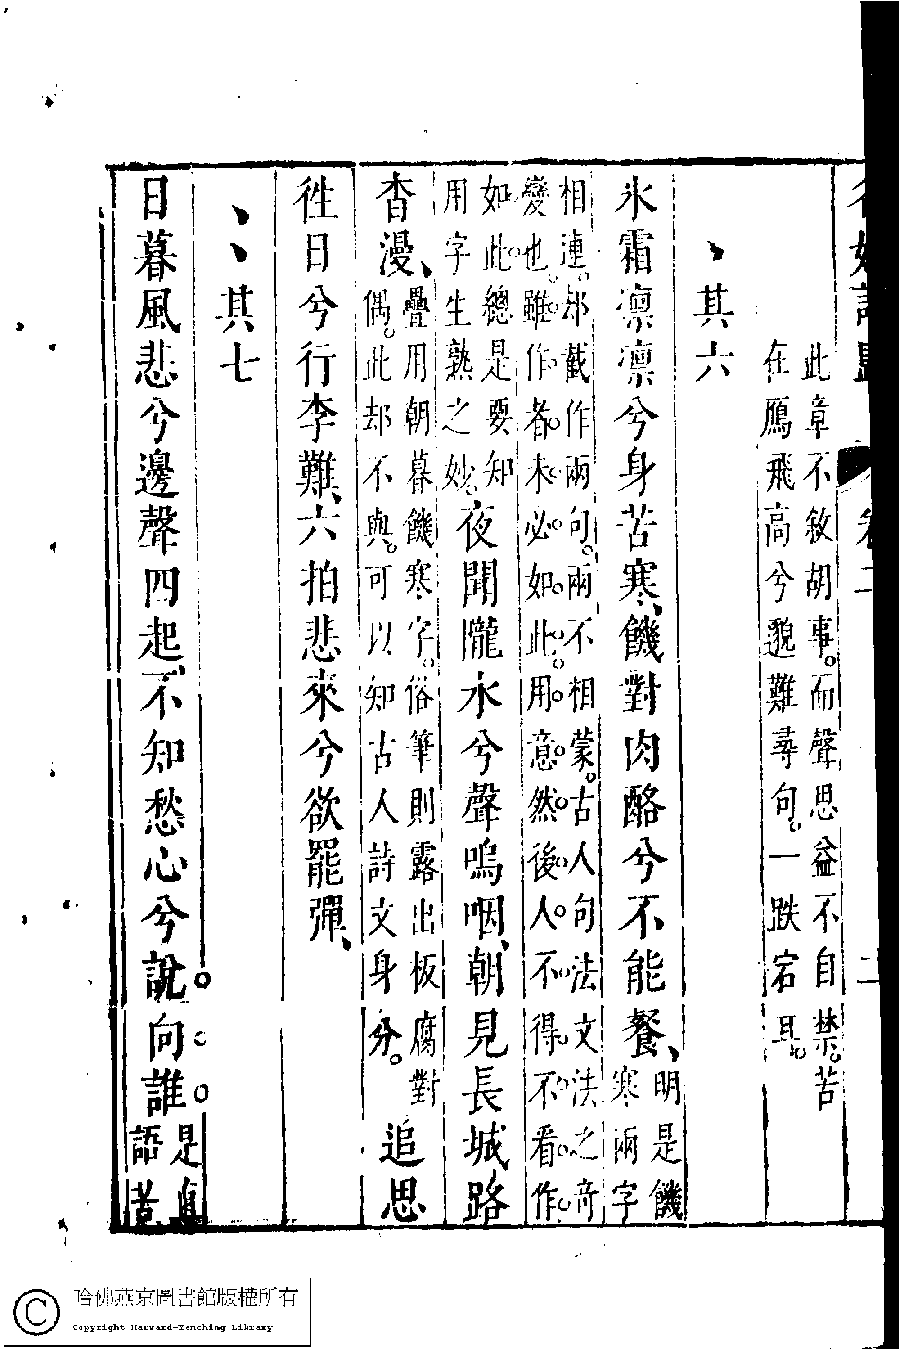 此章不敘胡事。而聲思益不自禁。苦
在鴈飛高兮邈難尋句。一跌宕耳。
、其六
氷霜凛凛兮身苦寒、饑對肉酪兮不能餐、明是饑
寒兩字
相連。却截作兩句。兩不相蒙。古人句法文法之竒
變也。雖作者未必如此。用意。然後人不得不看作
如此。總是要知
用字生熟之妙。夜聞隴水兮聲嗚咽、朝見長城路
杳漫、疊用朝暮饑寒字。俗筆則露出板腐對
偶。此却不與。可以知古人詩文身分。追思
徃日兮行李難、六拍悲來兮欲罷彈、
、、其七
日暮風悲兮邊聲四起、不知愁心兮說向誰是真
語苦
哈佛燕京圖書館版權所有
Copyright Harvard-Yenching Library